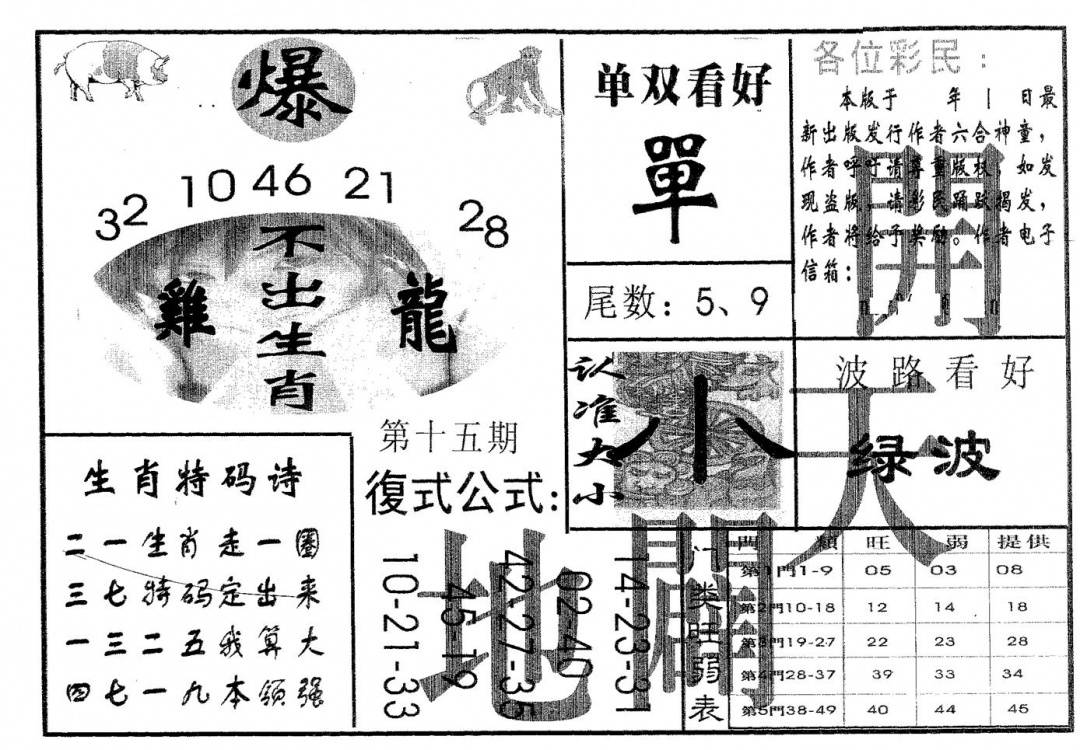 爆
32 10 46 21 28
不出生肖
雞
龍
第十五期
单双看好
單
尾数：5、9
各位彩民：
本版于 年 日最
新出版发行作者六合神童，
作者呼吁请尊重版权，如发
现盗版，请彩民踊跃揭发，
作者将给予奖励。作者电子
信箱：
開
认准大小
小
波路看好
绿波
天
生肖特码诗
二一生肖走一圈
三七特码定出来
一三二五我算大
四七一九本领强
復式公式：
10-21-33
45-19
42-27-35
02-40
14-23-31
地
開
门类旺弱表
門類 旺 弱 提供
第1門1-9 05 03 08
第2門10-18 12 14 18
第3門19-27 22 23 28
第4門28-37 39 33 34
第5門38-49 40 44 45